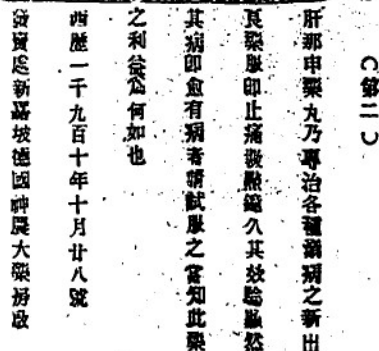 ○第二○
肝那申藥丸乃專治各種癩病之新出
良藥服即止痛數點鐘久其效驗雖然
其病即愈有病者請試服之當知此藥
之利益為何如也
西歷一千九百十年十月廿八號
發賣處新嘉坡德國神農大藥房啟